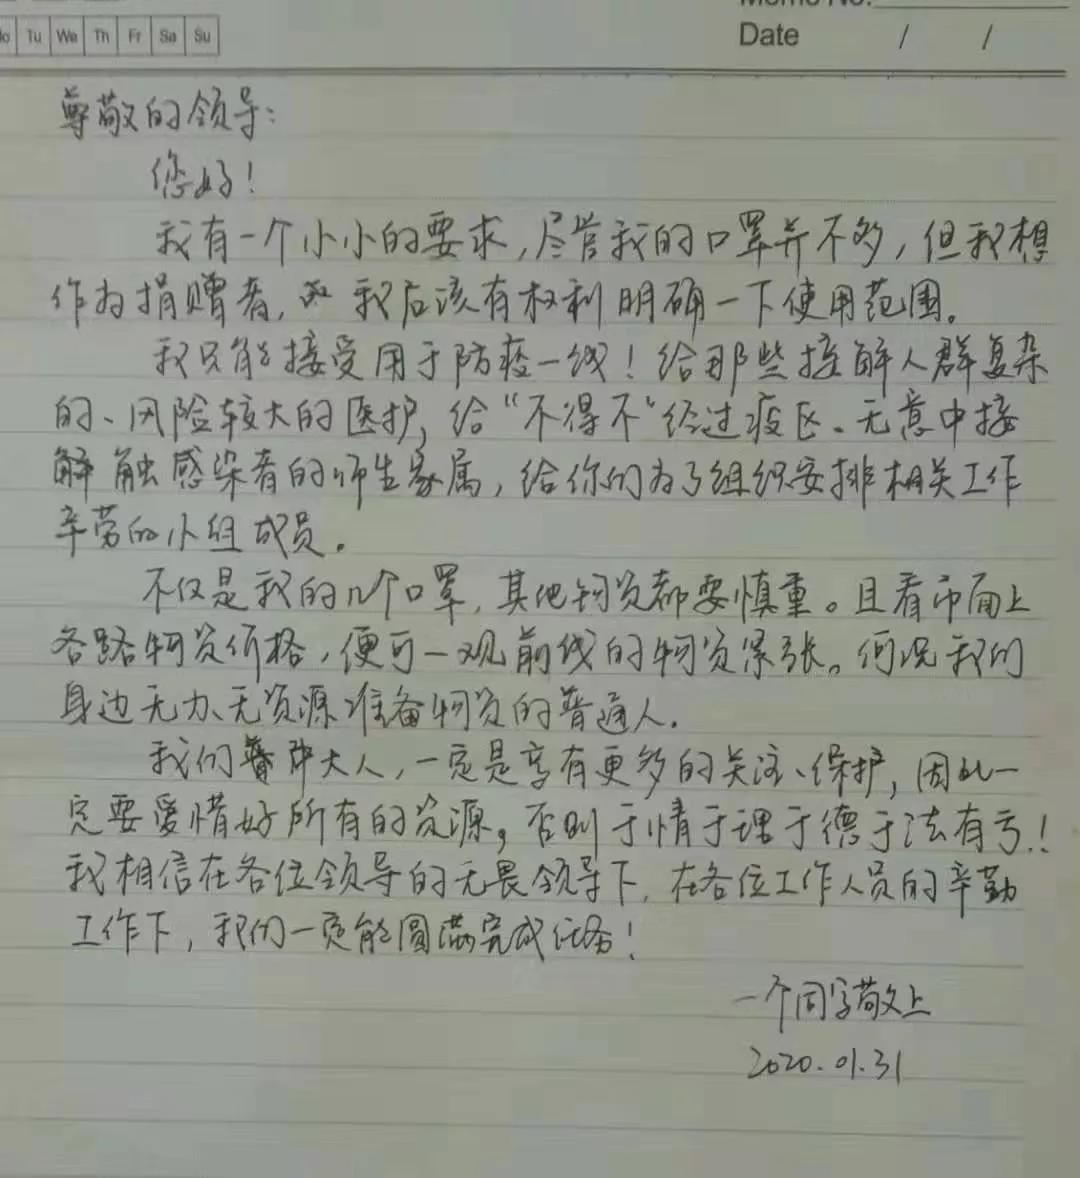 Tu We Th Fr Sa Su
Memo No.
Date / /
尊敬的领导：
您好！
我有一个小小的要求，尽管我的口罩并不多，但我想
作为捐赠者，我应该有权利明确一下使用范围。
我只能接受用于防疫一线！给那些接解人群复杂
的、风险较大的医护，给“不得不”经过疫区、无意中接
解触感染者的师生家属，给你们为了组织安排相关工作
辛劳的小组成员。
不仅是我的几个口罩，其他物资都要慎重。且看市面上
各路物资价格，便可一观前线的物资紧张。何况我们
身边无力、无资源准备物资的普通人。
我们华科大人，一定是享有更多的关注、保护，因此一
定要爱惜好所有的资源，否则于情于理于德于法有亏！
我相信在各位领导的无畏领导下，在各位工作人员的辛勤
工作下，我们一定能圆满完成任务！
一个同学敬上
2020.01.31